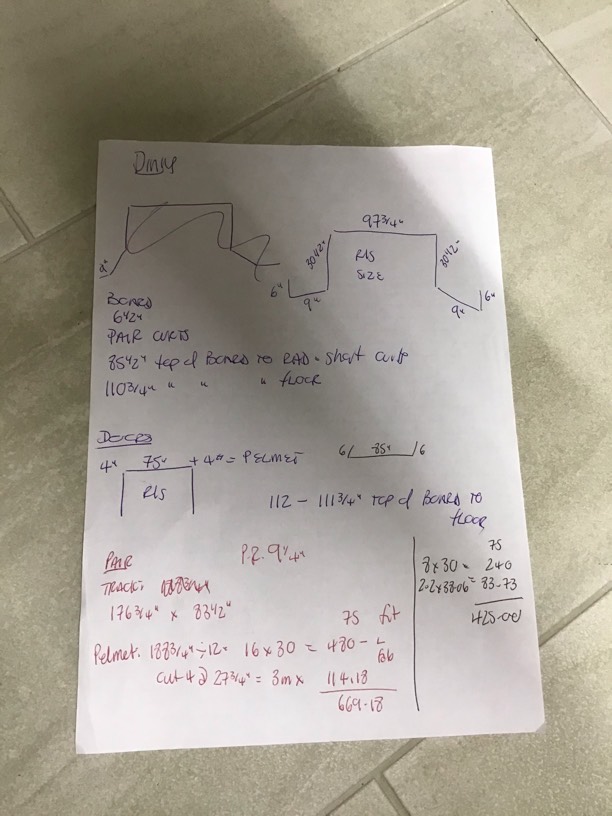 97 3/4"
30 1/2"
30 1/2"
R/S
SIZE
9"
6"
9"
9"
6"
BOARD
6 1/2"
PAIR CURTS
85 1/2" top of BOARD TO RAD = short curts
110 3/4" " " " FLOOR
DOORS
4" 75" + 4" = PELMET
R/S
6 85" 6
112 - 111 3/4" TOP of BOARD TO
FLOOR
PAIR
P.R. 9 1/4"
TRACK:
176 3/4" x 83 1/2"
75 fit
Pelmet. 188 3/4" ÷ 12 = 16 x 30 = 480 -
cut 4 @ 27 3/4" = 3m x 114.18
669.18
75
8 x 30 = 240
2.2 x 38.06 = 83-73